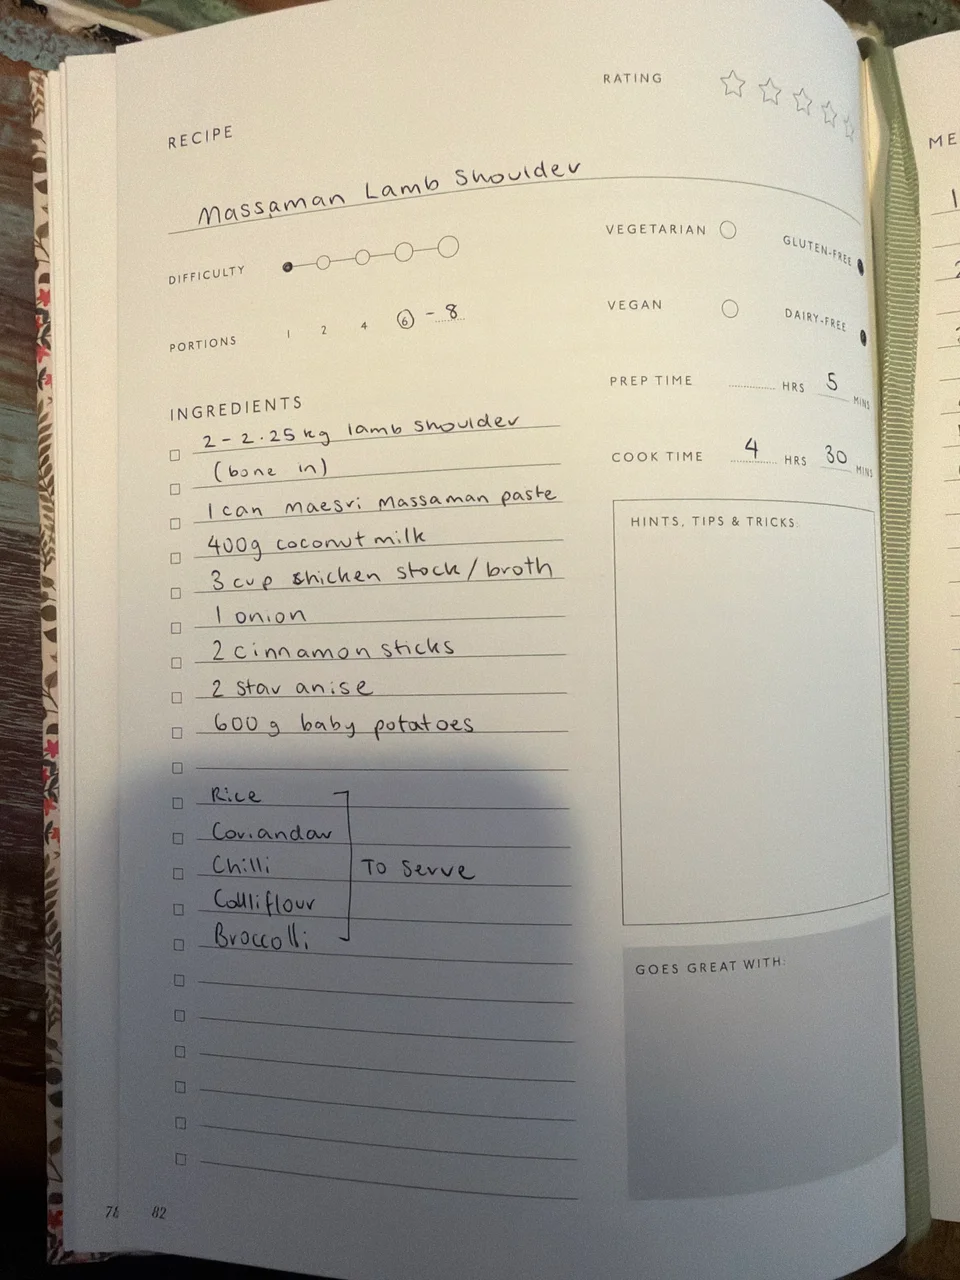 RATING
RECIPE
Massaman Lamb Shoulder
DIFFICULTY
PORTIONS 1 2 4 6 - 8
VEGETARIAN
GLUTEN-FREE
VEGAN
DAIRY-FREE
PREP TIME HRS 5 MINS
COOK TIME 4 HRS 30 MINS
INGREDIENTS
2 - 2.25 kg lamb shoulder
(bone in)
1 can maesri Massaman paste
400g coconut milk
3 cup chicken stock / broth
1 onion
2 cinnamon sticks
2 star anise
600 g baby potatoes
Rice
Coriandar
Chilli
Colliflour
Broccolli
To serve
HINTS, TIPS & TRICKS:
GOES GREAT WITH:
78 82
ME
1
2